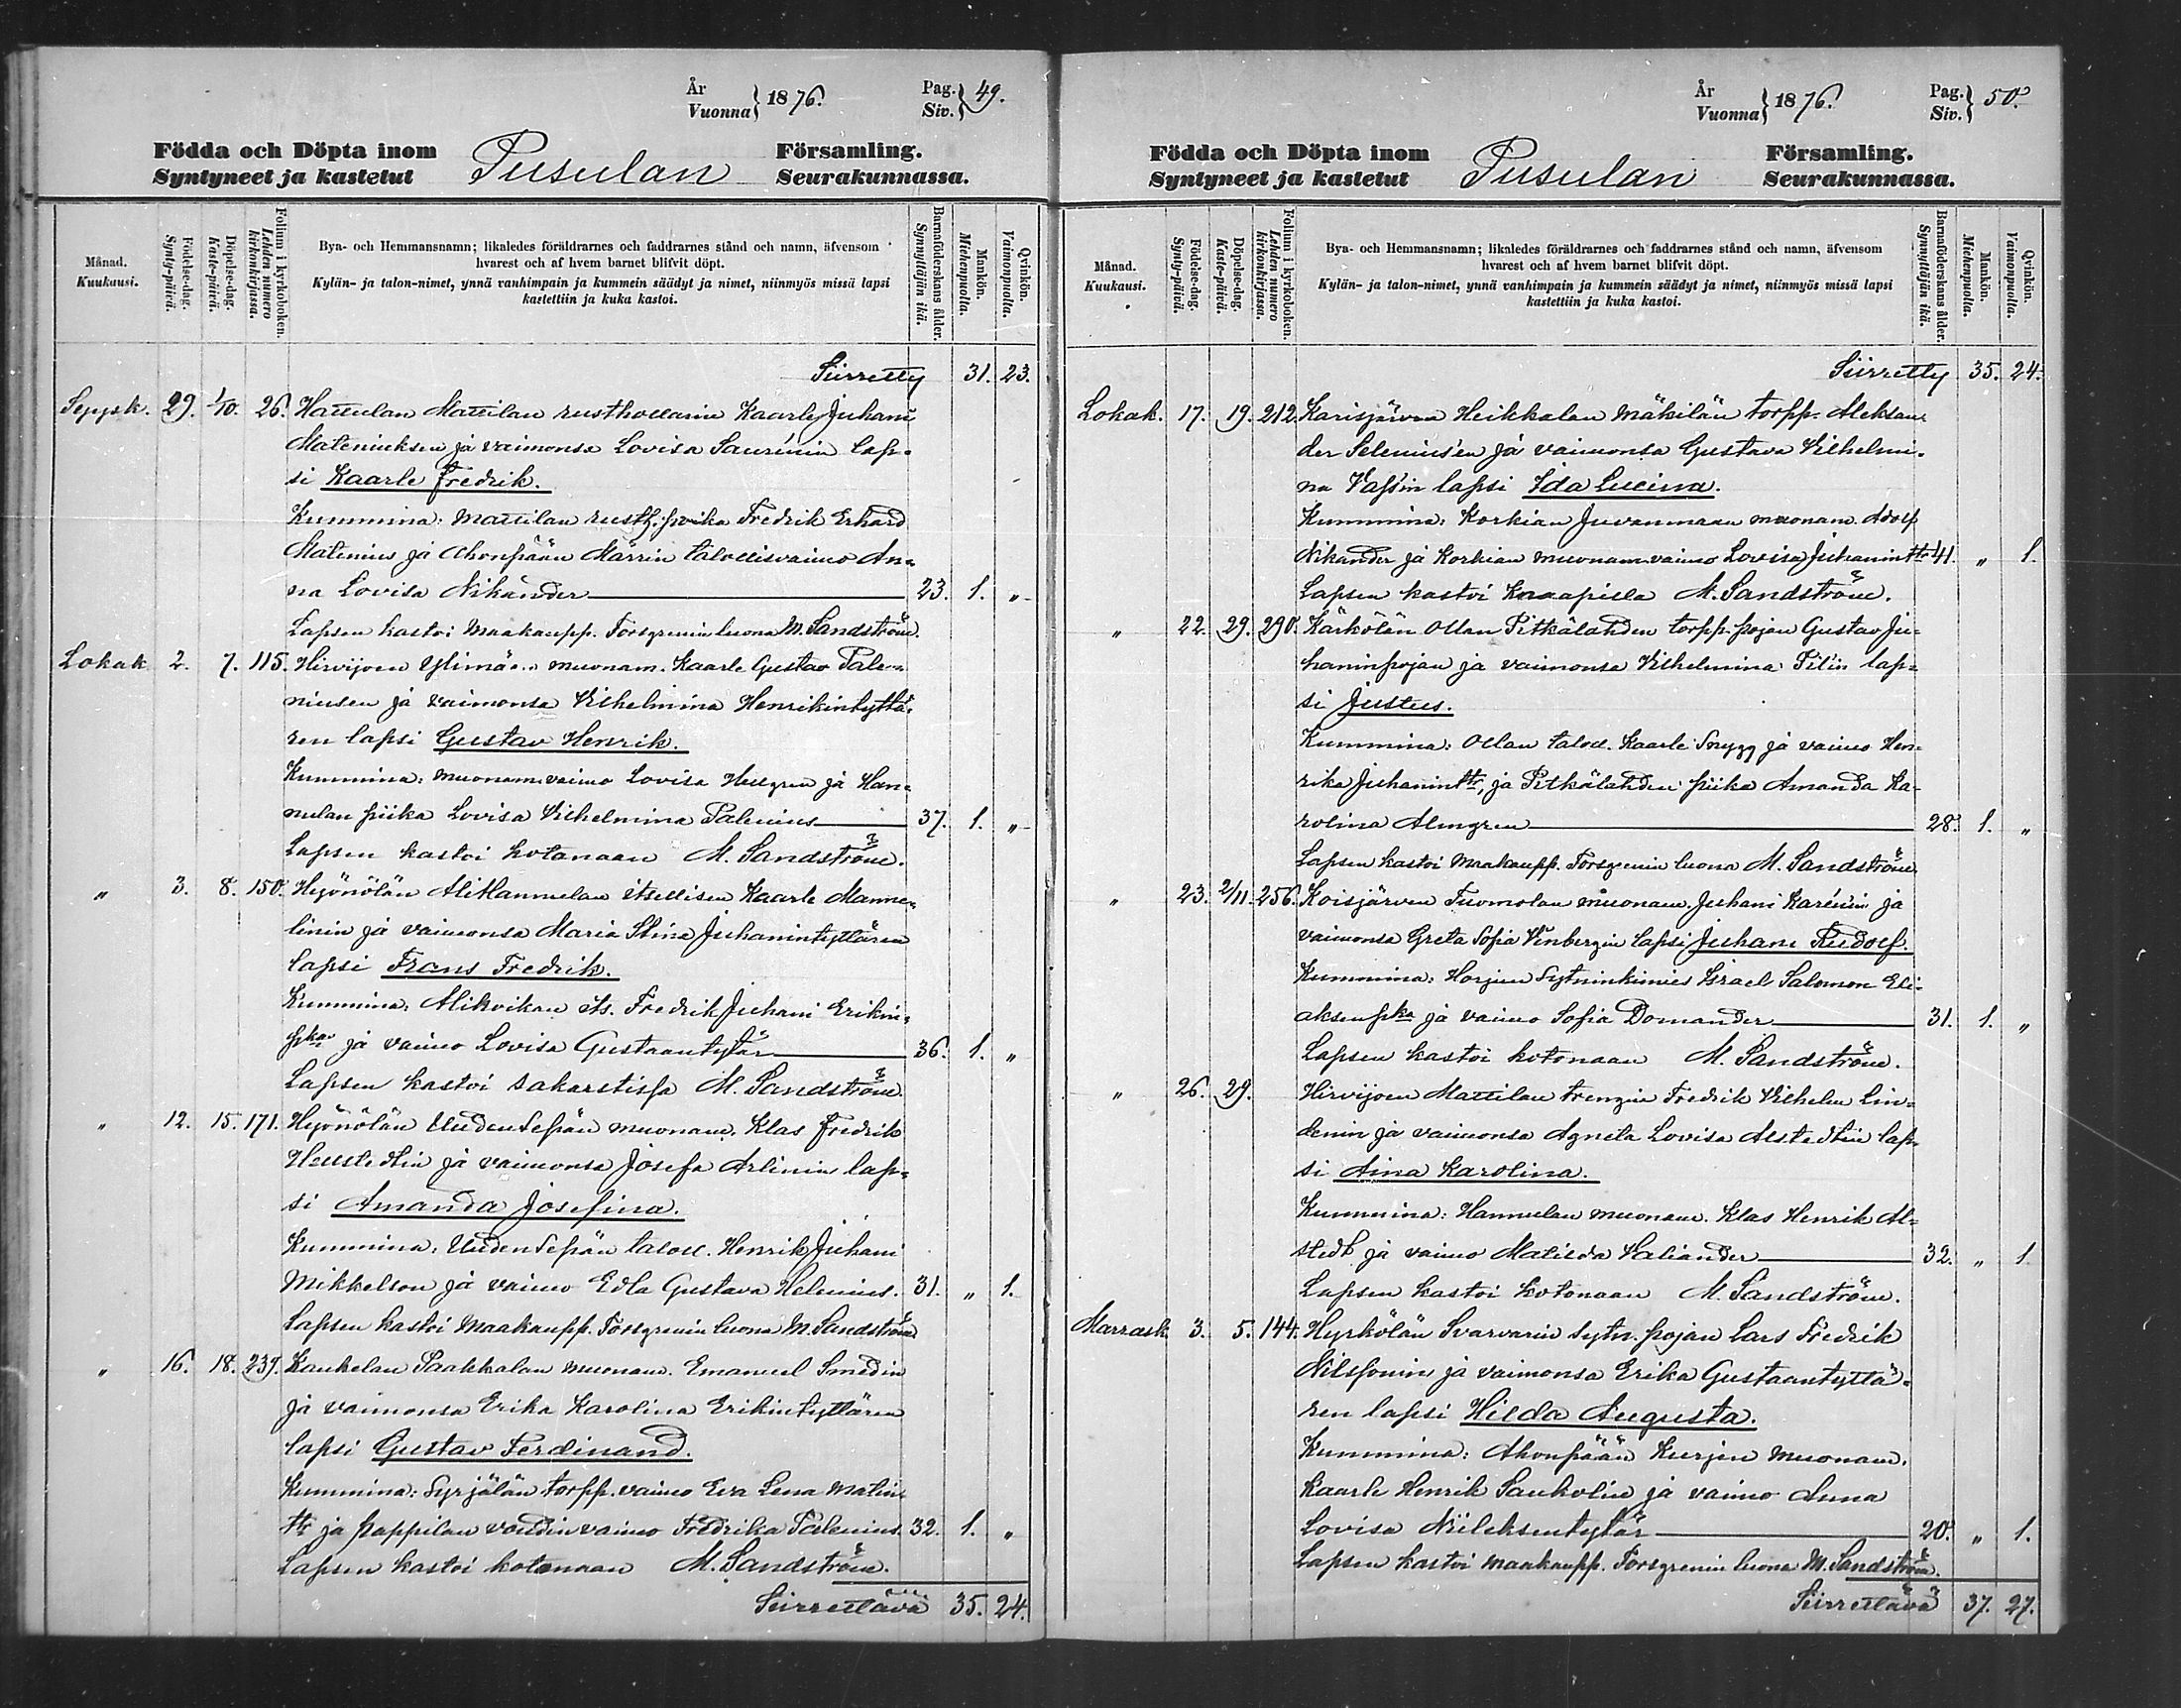 År
Vuonna } 1876. Pag.
Siv. } 49.
Födda och Döpta inom Pusulan Församling.
Syntyneet ja kastetut Seurakunnassa.
Månad.
Kuukausi.
Födelse-dag.
Synty-päivä.
Döpelse-dag.
Kaste-päivä.
Folium i kyrkoboken.
Lehden numero kirkonkirjassa.
Bya- och Hemmansnamn; likaledes föräldrarnes och faddrarnes stånd och namn, äfvensom
hvarest och af hvem barnet blifvit döpt.
Kylän- ja talon-nimet, ynnä vanhimpain ja kummein säädyt ja nimet, niinmyös missä lapsi
kastettiin ja kuka kastoi.
Barnaföderskans ålder.
Synnyttäjän ikä.
Mankön.
Miehenpuolta.
Qvinkön.
Vaimonpuolta.
Siirretty 31. 23.
Syysk. 29. 1/10. 26. Hattulan Mattilan rusthollarin Kaarle Juhani
Mateniuksen ja vaimonsa Lovisa Saurénin lap-
si Kaarle Fredrik.
Kummina: Mattilan rusth. poika Fredrik Erhard
Matenius ja Ahonpään Märrin talollisvaimo An-
na Lovisa Nikander 23. 1. "
Lapsen kastoi Maakaupp. Forsgrenin luona M. Sandström.
Lokak. 2. 7. 115. Hirvijoen muonam. Kaarle Gustav Pale-
niusen ja vaimonsa Vilhelmina Henrikintyttä-
ren lapsi Gustav Henrik.
Kummina: muonam. vaimo Lovisa Hellgren ja Han-
nulan piika Lovisa Vilhelmina Palenius 37. 1. "
Lapsen kastoi kotonaan M. Sandström.
" 3. 8. 150. Hyönölän AliHannulan itsellisen Kaarle Manne-
linin ja vaimonsa Maria Stina Juhanintyttären
lapsi Frans Fredrik.
Kummina: Alikvikan its. Fredrik Juhani Erikin-
pka ja vaimo Lovisa Gustaantytär 36. 1. "
Lapsen kastoi sakastissa M. Sandström.
" 12. 15. 171. Hyönölän UudenSepän muonam. Klas Fredrik
Hellstedtin ja vaimonsa Josefa Arlinin lap-
si Amanda Josefina.
Kummina: UudenSepän taloll. Henrik Juhani
Mikkelson ja vaimo Edla Gustava Helenius. 31. " 1.
Lapsen kastoi Maakaupp. Forsgrenin luona M. Sandström
" 16. 18. 239. Kaukelan Paakkalan muonam. Emanuel Smedin
ja vaimonsa Erika Karolina Erikintyttären
lapsi Gustav Ferdinand.
Kummina: Syrjälän torpp. vaimo Eva Lena Matin-
ttr ja pappilan voudin vaimo Fredrika Palenius. 32. 1. "
Lapsen kastoi kotonaan M. Sandström.
Siirrettävä 35. 24.
År
Vuonna } 1876. Pag.
Siv. } 50.
Födda och Döpta inom Pusulan Församling.
Syntyneet ja kastetut Seurakunnassa.
Månad.
Kuukausi.
Födelse-dag.
Synty-päivä.
Döpelse-dag.
Kaste-päivä.
Folium i kyrkoboken.
Lehden numero kirkonkirjassa.
Bya- och Hemmansnamn; likaledes föräldrarnes och faddrarnes stånd och namn, äfvensom
hvarest och af hvem barnet blifvit döpt.
Kylän- ja talon-nimet, ynnä vanhimpain ja kummein säädyt ja nimet, niinmyös missä lapsi
kastettiin ja kuka kastoi.
Barnaföderskans ålder.
Synnyttäjän ikä.
Mankön.
Miehenpuolta.
Qvinkön.
Vaimonpuolta.
Siirretty 35. 24.
Lokak. 17. 19. 212. Karisjärven Heikkalan Mäkilän torpp. Aleksan-
der Selenius'en ja vaimonsa Gustava Vilhelmi-
na Vass'in lapsi Ida Lucina.
Kummina: Korkian Juvanmaan muonam. Adolf
Nikander ja Korkian muonam. vaimo Lovisa Juhaninttr 41. " 1.
Lapsen kastoi M. Sandström.
" 22. 29. 290. Kärkölän Ollan Pitkälahden torpp. pojan Gustav Ju-
haninpojan ja vaimonsa Vilhelmina Pilin lap-
si Justus.
Kummina: Ollan taloll. Kaarle Snygg ja vaimo Hen-
rika Juhaninttr, ja Pitkälahden piika Amanda Ka-
rolina Almgren 28. 1. "
Lapsen kastoi Maakaupp. Forsgrenin luona M. Sandström.
" 23. 2/11. 256. Koisjärven Tuomolan muonam. Juhani Karénin ja
vaimonsa Greta Sofia Vinbergin lapsi Juhani Rudolf.
Kummina: Horjun Sytninkimies Israel Salomon Eli-
aksenpka ja vaimo Sofia Domander 31. 1. "
Lapsen kastoi kotonaan M. Sandström.
" 26. 29. Hirvijoen Mattilan trengin Fredrik Vilhelm Lin-
denin ja vaimonsa Agneta Lovisa Alstedtin lap-
si Aina Karolina.
Kummina: Hannulan muonam. Klas Henrik Al-
stedt ja vaimo Matilda Valiander 32. " 1.
Lapsen kastoi kotonaan M. Sandström.
Marrask. 3. 5. 144. Hyrkölän Svarvarin sytn. pojan Lars Fredrik
Nilssonin ja vaimonsa Erika Gustaantyttä-
ren lapsi Hilda Augusta.
Kummina: Ahonpään Kurjen muonam.
Kaarle Henrik Saukolin ja vaimo Anna
Lovisa Niileksentytär 20. " 1.
Lapsen kastoi Maakaupp. Forsgrenin luona M. Sandström.
Siirrettävä 37. 27.